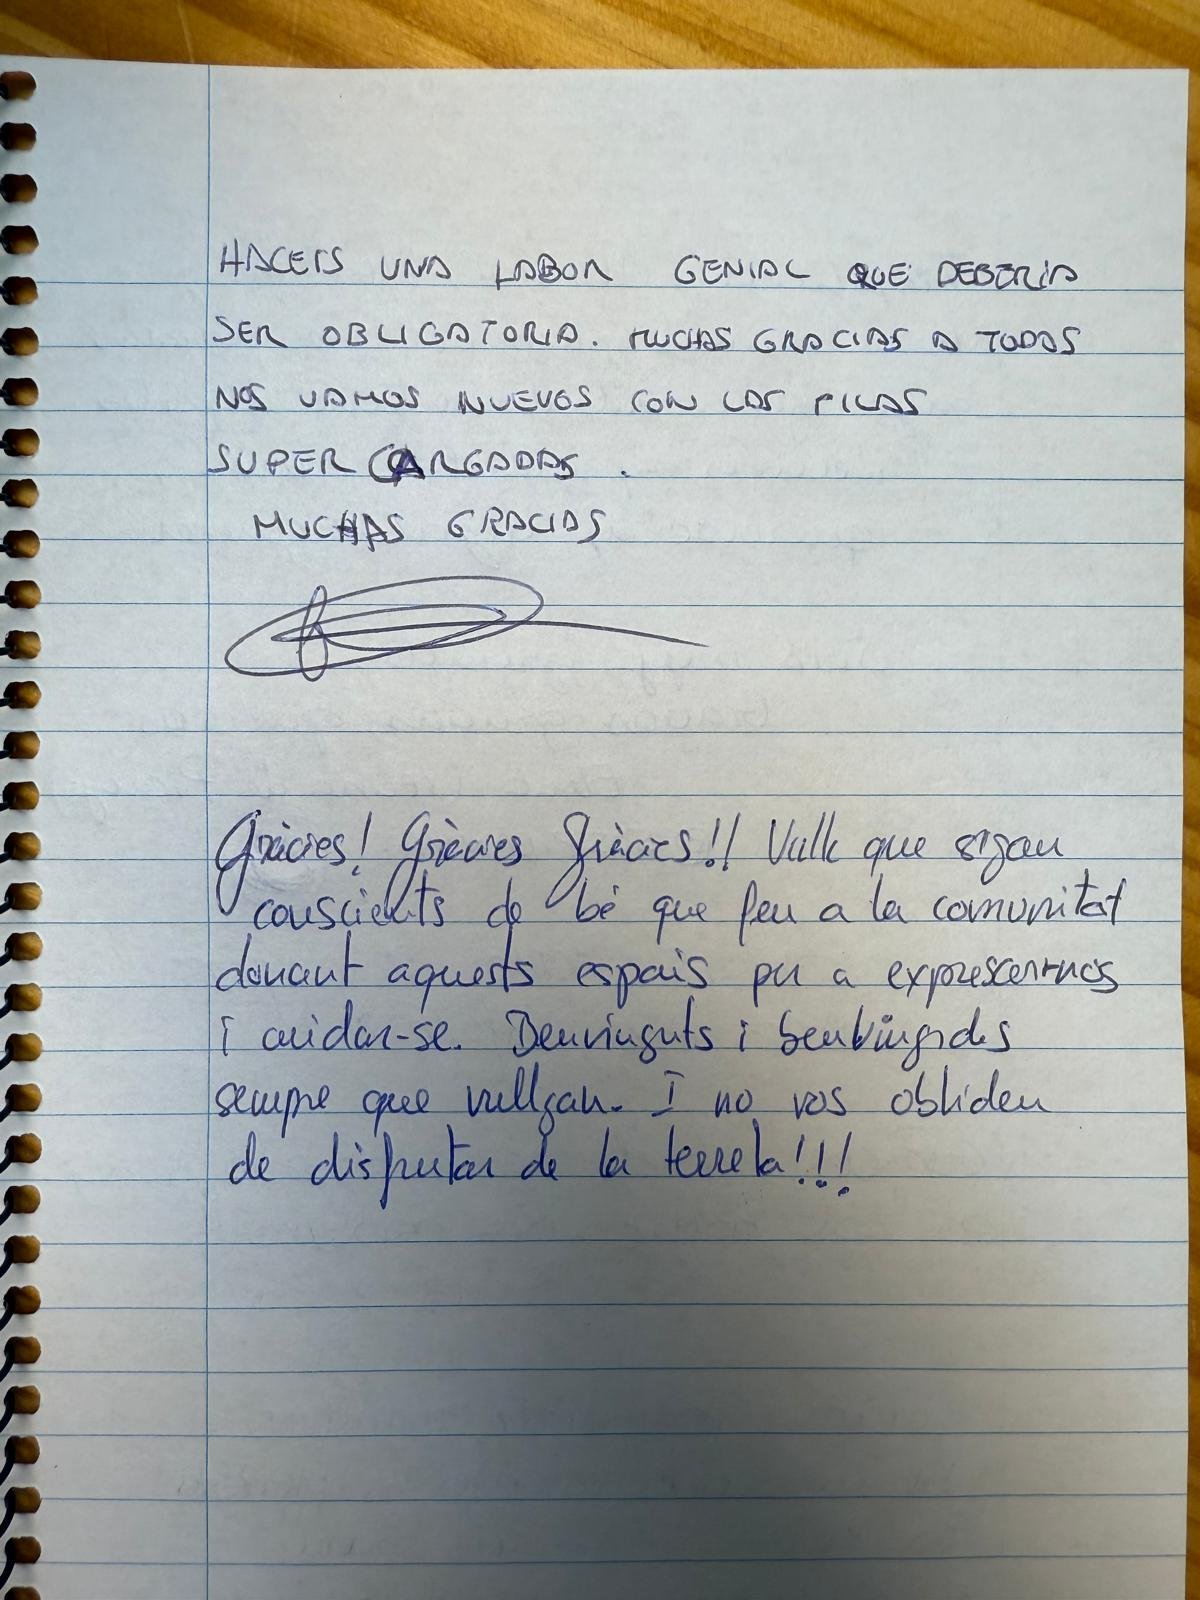 HACEIS UNA LABOR GENIAL QUE DEBERIA
SER OBLIGATORIA. MUCHAS GRACIAS A TODAS
NOS VAMOS NUEVOS CON LAS PILAS
SUPER CARGADAS.
MUCHAS GRACIAS
Gràcies! Gràcies Gràcies!! Vulk que sigau
conscients de bé que feu a la comunitat
donant aquests espais per a expressernos
i cuidar-se. Benvinguts i benvingudes
sempre que vullgau. I no vos oblideu
de disfrutar de la terreta!!!